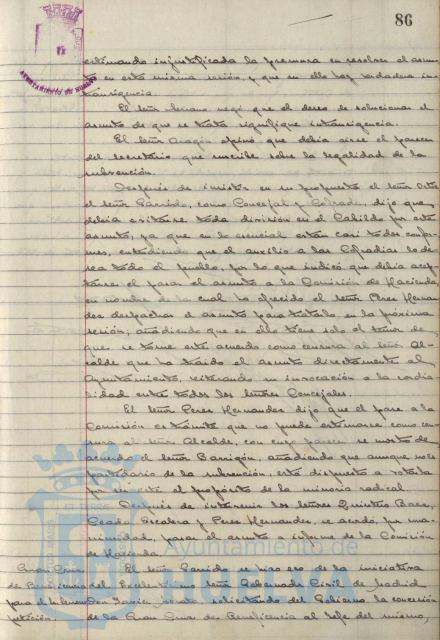 86
AYUNTAMIENTO DE HUELVA
estimando injustificada la premura en resolver el asun-
to en esta misma sesión, y que en ello hay verdadera in-
transigencia.
El señor negó que el deseo de solucionar el
asunto de que se trata signifique intransigencia.
El señor Aragón opinó que debia oirse el parecer
del Secretario que suscribe sobre la legalidad de la
subvención.
Después de insistir en su propuesta el señor
el señor Garrido, como Concejal y Cofrade, dijo que
debia evitarse toda división en el Cabildo por este
asunto, ya que en lo esencial están casi todos confor-
mes, entendiendo que el auxilio a las Cofradias lo de-
sea todo el pueblo, por lo que indicó que debia acep-
tarse el pasar el asunto a la Comisión de Hacienda,
en nombre de la cual ha ofrecido el señor Peres Hernan-
des despachar el asunto para tratarlo en la próxima
sesión; añadiendo que en ello tiene solo el temor de
que se tome este acuerdo como censura al señor Al-
calde que ha traido el asunto directamente al
Ayuntamiento, reiterando su invocación a la cordia-
lidad entre todos los señores Concejales.
El señor Peres Hernandes dijo que el pase a la
Comisión es trámite que no puede estimarse como cen-
sura al señor Alcalde, con cuyo parecer se mostró de
acuerdo el señor Barrigón, añadiendo que aunque no es
partidario de la subvención, está dispuesto a votarla
por el propósito de la minoria radical.
Después de intervenir los señores Quintero Baez,
Ceada, Escalera y Peres Hernandes, se acordó, por una-
nimidad, pasar el asunto a informe de la Comisión
de Hacienda.
Gran Cruz
de Beneficencia
para el
petición.
El señor Garrido se hizo eco de la iniciativa
del Excelentisimo señor Gobernador Civil de Madrid
Don Javier Morata solicitando del Gobierno la concesión
de la Gran Cruz de Beneficencia al Jefe del mismo,
Ayuntamiento de